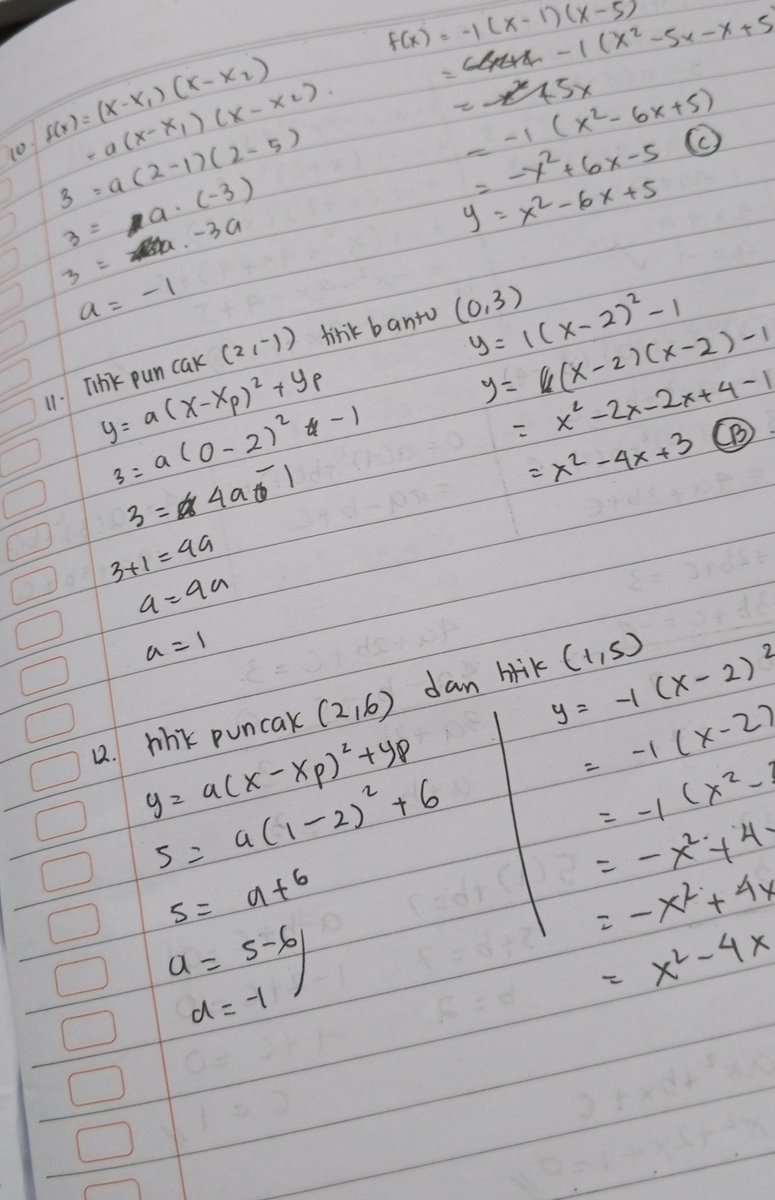 10. f(x) = (x-x₁) (x-x₂)
= a(x-x₁) (x-x₂).
3 = a(2-1)(2-5)
3 = a. (-3)
3 = -3a
a = -1
f(x) = -1(x-1)(x-5)
= -1(x²-5x-x+5
= +5x
= -1 (x²-6x+5)
= -x²+6x-5 (C)
y = x²-6x+5
11. Titik puncak (2,-1) titik bantu (0,3)
y = a(x-xp)²+yp
3 = a(0-2)² -1
3 = 4a-1
3+1 = 4a
a = 4a
a = 1
y = 1(x-2)²-1
y = (x-2)(x-2)-1
= x²-2x-2x+4-1
= x²-4x+3 (B)
12. titik puncak (2,6) dan titik (1,5)
y = a(x-xp)²+yp
5 = a(1-2)²+6
5 = a+6
a = 5-6
a = -1
y = -1(x-2)²
= -1(x-2)
= -1(x²-
= -x²+4
= -x²+4x
= x²-4x